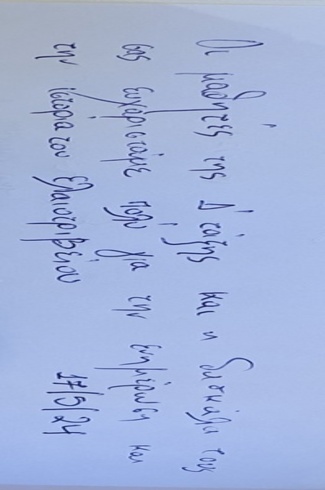 Οι μαθητές της Δ' τάξης και η δασκάλα τους
σας ευχαριστούμε πολύ για την ενημέρωση και
την ιστορία του Ελαιοτριβείου
17/5/24